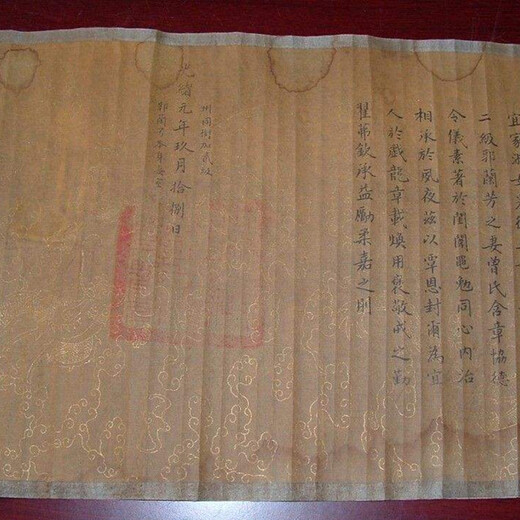 宜家
二級郭蘭芳之妻曾氏含章協德
令儀素著於閨闈黽勉同心內治
相承於夙夜茲以覃恩封爾為宜
人於戲龍章載煥用褒敬戒之勤
翟茀欽承益勵柔嘉之則
州同銜加貳級
光緒元年玖月拾捌日
郭蘭芳本身妻室